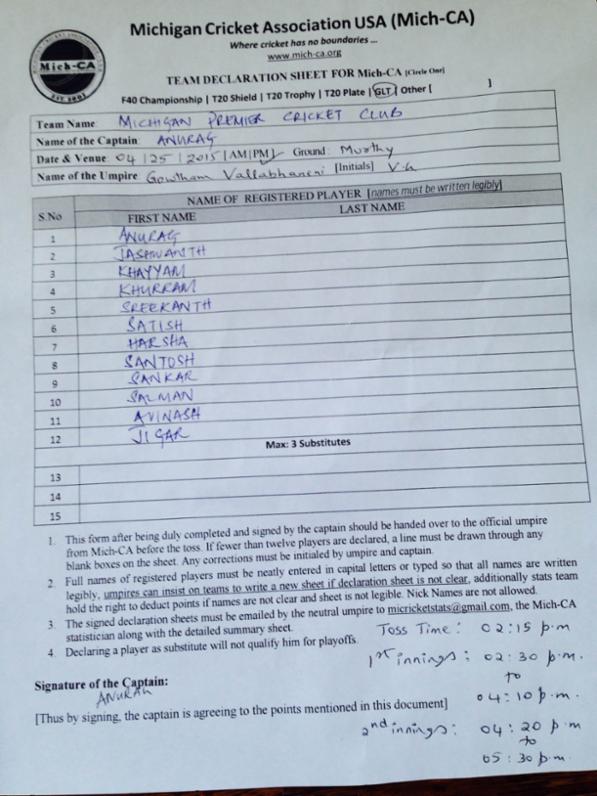 Michigan Cricket Association USA (Mich-CA)
Where cricket has no boundaries ...
www.mich-ca.org
Mich-CA
EST. 2001
TEAM DECLARATION SHEET FOR Mich-CA [Circle One]
F40 Championship | T20 Shield | T20 Trophy | T20 Plate | GLT | Other [ ]
Team Name MICHIGAN PREMIER CRICKET CLUB
Name of the Captain ANURAG
Date & Venue 04 | 25 | 2015 | AM|PM| Ground: Murthy
Name of the Umpire Gowtham Vallabhaneni [Initials] V.G
NAME OF REGISTERED PLAYER [names must be written legibly]
S.No FIRST NAME LAST NAME
1 ANURAG
2 JASHWANTH
3 KHAYYAM
4 KHURRAM
5 SREEKANTH
6 SATISH
7 HARSHA
8 SANTOSH
9 SANKAR
10 SALMAN
11 AVINASH
12 JIGAR
Max: 3 Substitutes
13
14
15
1. This form after being duly completed and signed by the captain should be handed over to the official umpire
from Mich-CA before the toss. If fewer than twelve players are declared, a line must be drawn through any
blank boxes on the sheet. Any corrections must be initialed by umpire and captain.
2. Full names of registered players must be neatly entered in capital letters or typed so that all names are written
legibly, umpires can insist on teams to write a new sheet if declaration sheet is not clear, additionally stats team
hold the right to deduct points if names are not clear and sheet is not legible. Nick Names are not allowed.
3. The signed declaration sheets must be emailed by the neutral umpire to micricketstats@gmail.com, the Mich-CA
statistician along with the detailed summary sheet.
4. Declaring a player as substitute will not qualify him for playoffs.
Toss Time: 02:15 p.m
1st innings: 02:30 p.m.
to
04:10 p.m.
2nd innings: 04:20 p.m
to
05:30 p.m.
Signature of the Captain:
ANURAG
[Thus by signing, the captain is agreeing to the points mentioned in this document]